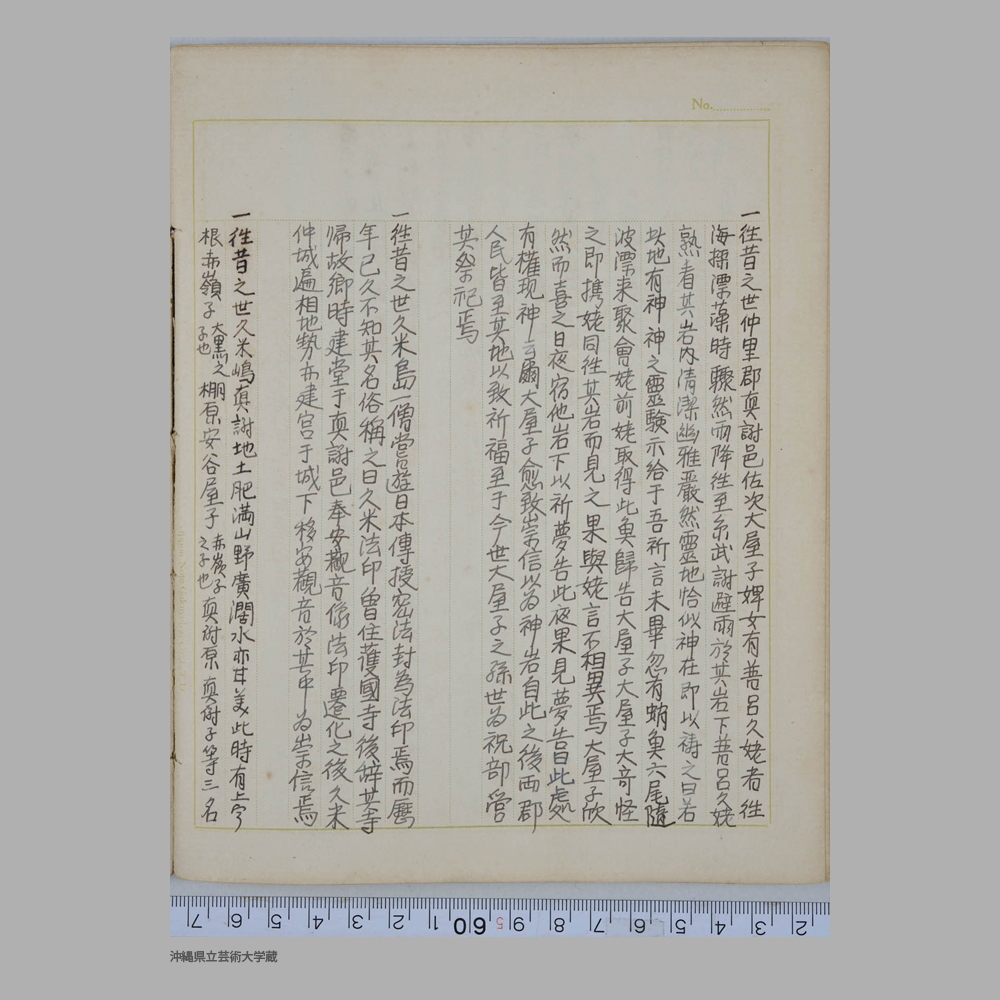 No.
一往昔之世仲里郡真謝邑佐次大屋子婢女有善呂久姥者往
海探漂藻時驟然雨降往至糸武謝避雨於其岩下善呂久姥
熟看其岩内清潔幽雅嚴然靈地恰似神在即以禱之曰若
此地有神神之靈験示給于吾祈言未畢忽有蛸魚六尾隨
波漂来聚會姥前姥取得此魚歸告大屋子大屋子大奇怪
之即携姥同往其岩而見之果與姥言不相異焉大屋子欣
然而喜之日夜宿他岩下以祈夢告此夜果見夢告曰此處
有權現神云爾大屋子愈致崇信以為神岩自此之後両郡
人民皆至其地以致祈福至于今世大屋子之孫世為祝部營
其祭祀焉
一往昔之世久米島一僧嘗遊日本傳授密法封為法印焉而歷
年已久不知其名俗稱之曰久米法印曽住護國寺後辞其寺
帰故郷時建堂于真謝邑奉安觀音像法印遷化之後久米
仲城遍相地勢亦建宮于城下移安觀音於其中為崇信焉
一往昔之世久米嶋真謝地土肥満山野廣濶水亦甘美此時有上宇
根赤嶺子 大黒之子也 棚原安谷屋子 赤嶺子之子也 真謝原真謝子等三名
7 6 5 4 3 2 1 60 5 9 8 7 6 5 4 3 2
沖縄県立芸術大学蔵